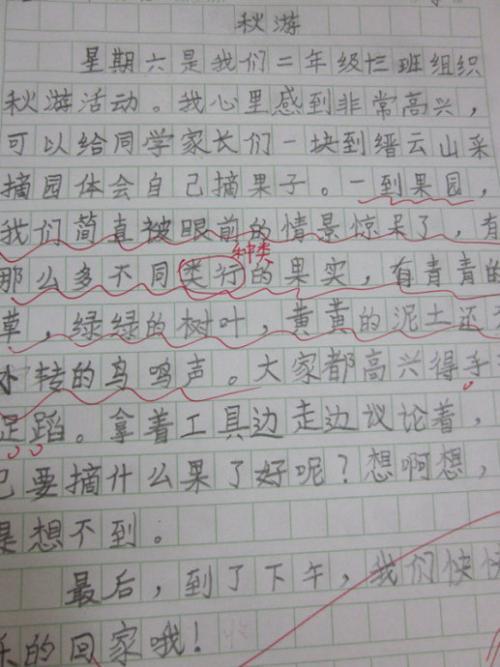 秋游
星期六是我们二年级七班组织
秋游活动。我心里感到非常高兴，
可以给同学家长们一块到缙云山采
摘园体会自己摘果子。一到果园，
我们简直被眼前的情景惊呆了，有
种类
那么多不同类行的果实，有青青的
草，绿绿的树叶，黄黄的泥土还
转的鸟鸣声。大家都高兴得手
足蹈。拿着工具边走边议论着，
己要摘什么果了好呢？想啊想，
是想不到。
最后，到了下午，我们快快
乐的回家哦！